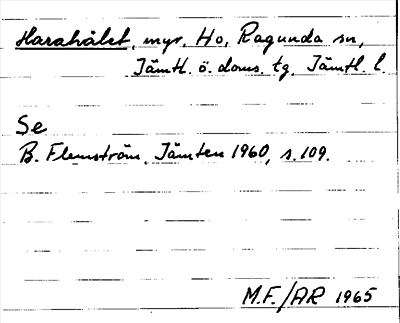 Harahålet, myr, Ho, Ragunda sn,
Jämtl. ö. doms. tg, Jämtl. l.
Se
B. Flemström, Jämten 1960, s. 109.
M.F./AR 1965